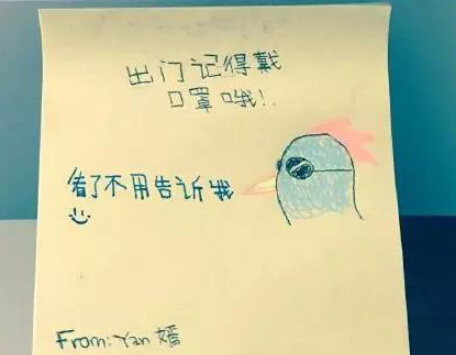 出门记得戴
口罩哦!!
看了不用告诉我
From: Yan 嫣